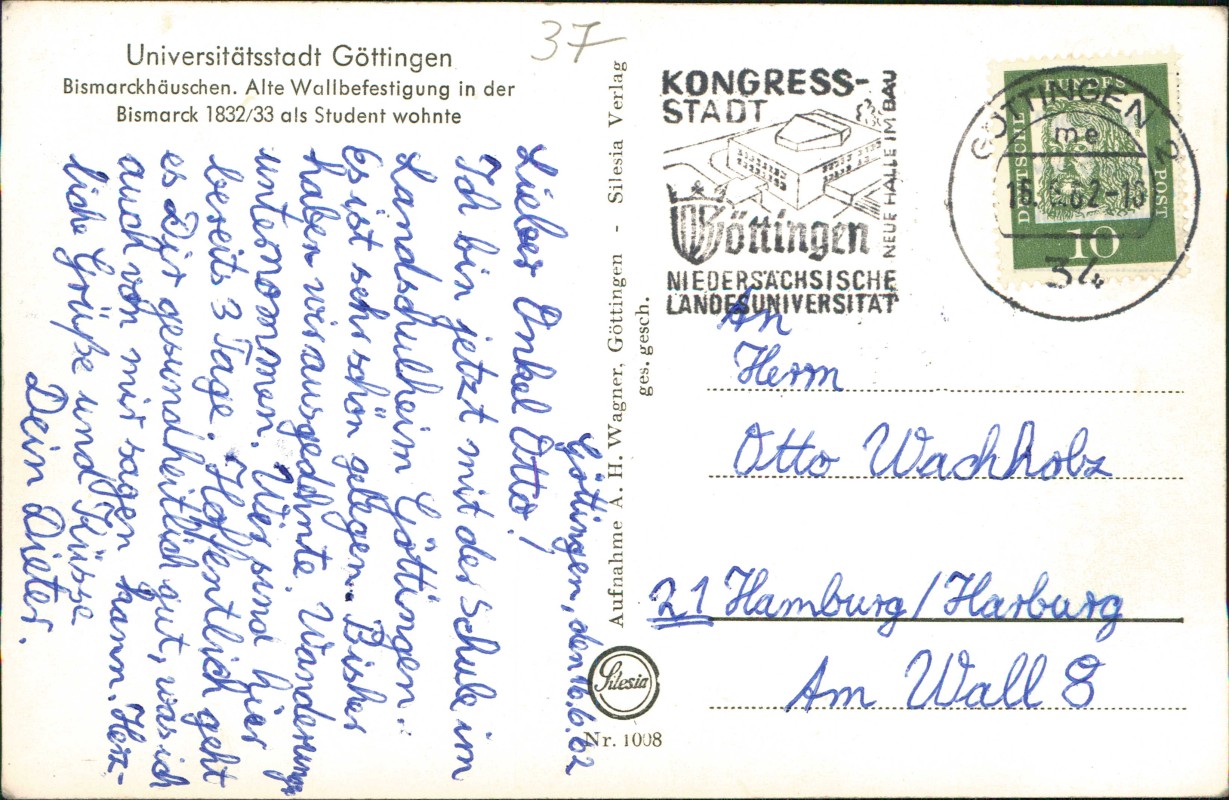 Universitätsstadt Göttingen
Bismarckhäuschen. Alte Wallbefestigung in der
Bismarck 1832/33 als Student wohnte
37
Göttingen, den 16.6.62
Lieber Onkel Otto!
Ich bin jetzt mit der Schule im
Landschulheim Göttingen.
Es ist sehr schön gelegen. Bisher
haben wir ausgedehnte Wanderungen
unternommen. Wir sind hier
bereits 3 Tage. Hoffentlich geht
es Dir gesundheitlich gut, was ich
auch von mir sagen kann. Herz-
liche Grüße und Küsse
Dein Dieter.
Aufnahme A. H. Wagner, Göttingen - Silesia Verlag
ges. gesch.
Silesia
Nr. 1008
KONGRESS-
STADT
NEUE HALLE IM BAU
Göttingen
NIEDERSÄCHSISCHE
LANDESUNIVERSITÄT
GÖTTINGEN 2
me
34
DEUTSCHE BUNDESPOST
10
An
Herrn
Otto Wachholz
21 Hamburg/Harburg
Am Wall 8